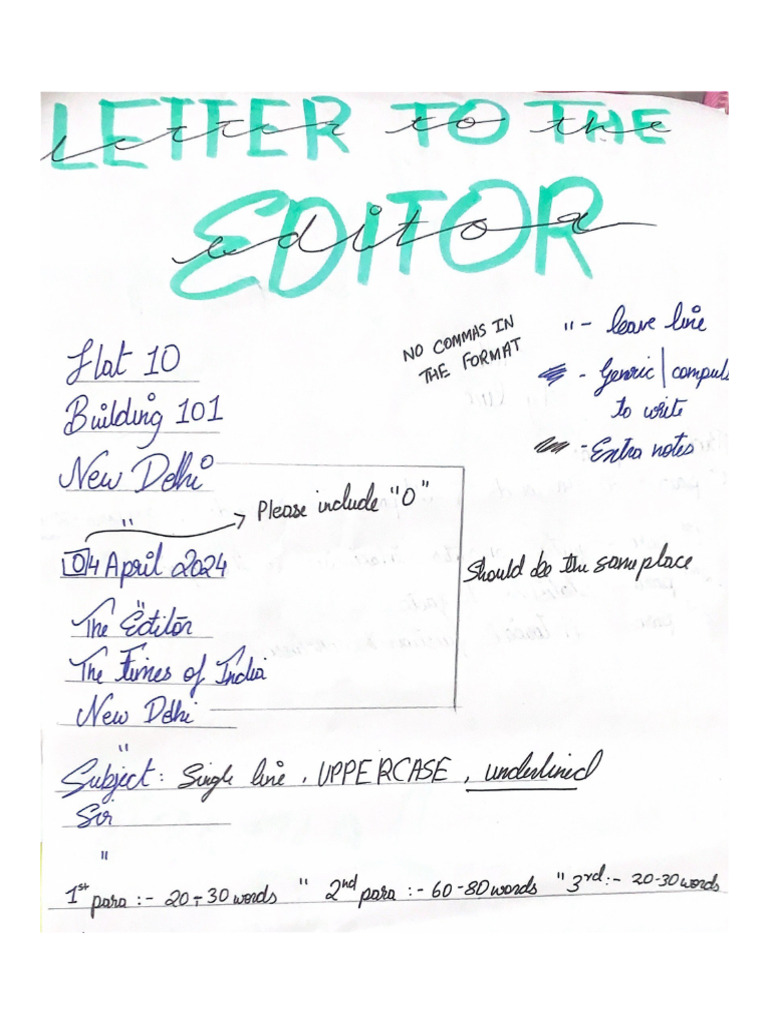 LETTER TO THE
letter to the
EDITOR
editor
NO COMMAS IN
THE FORMAT
" - leave line
- Genric | compuls
to write
- Extra notes
Flat 10
Building 101
New Delhi
"
→ Please include "0"
04 April 2024
Should be the same place
"
The Editor
The Times of India
New Delhi
"
Subject: Single line, UPPERCASE, underlined
Sir
"
1st para :- 20-30 words " 2nd para :- 60-80 words " 3rd :- 20-30 words